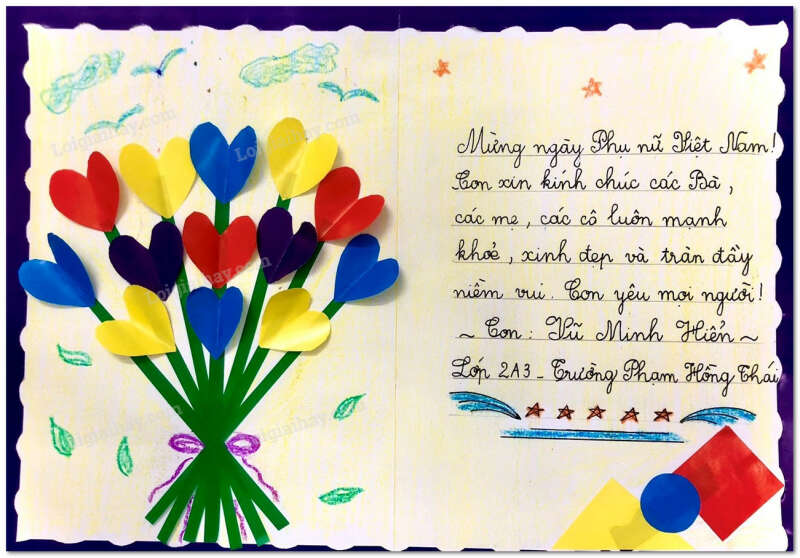 Loigiaihay.com
Loigiaihay.com
Loigiaihay.com
Mừng ngày Phụ nữ Việt Nam!
Con xin kính chúc các Bà,
các mẹ, các cô luôn mạnh
khoẻ, xinh đẹp và tràn đầy
niềm vui. Con yêu mọi người!
~ Con: Vũ Minh Hiển ~
Lớp 2A3 - Trường Phạm Hồng Thái